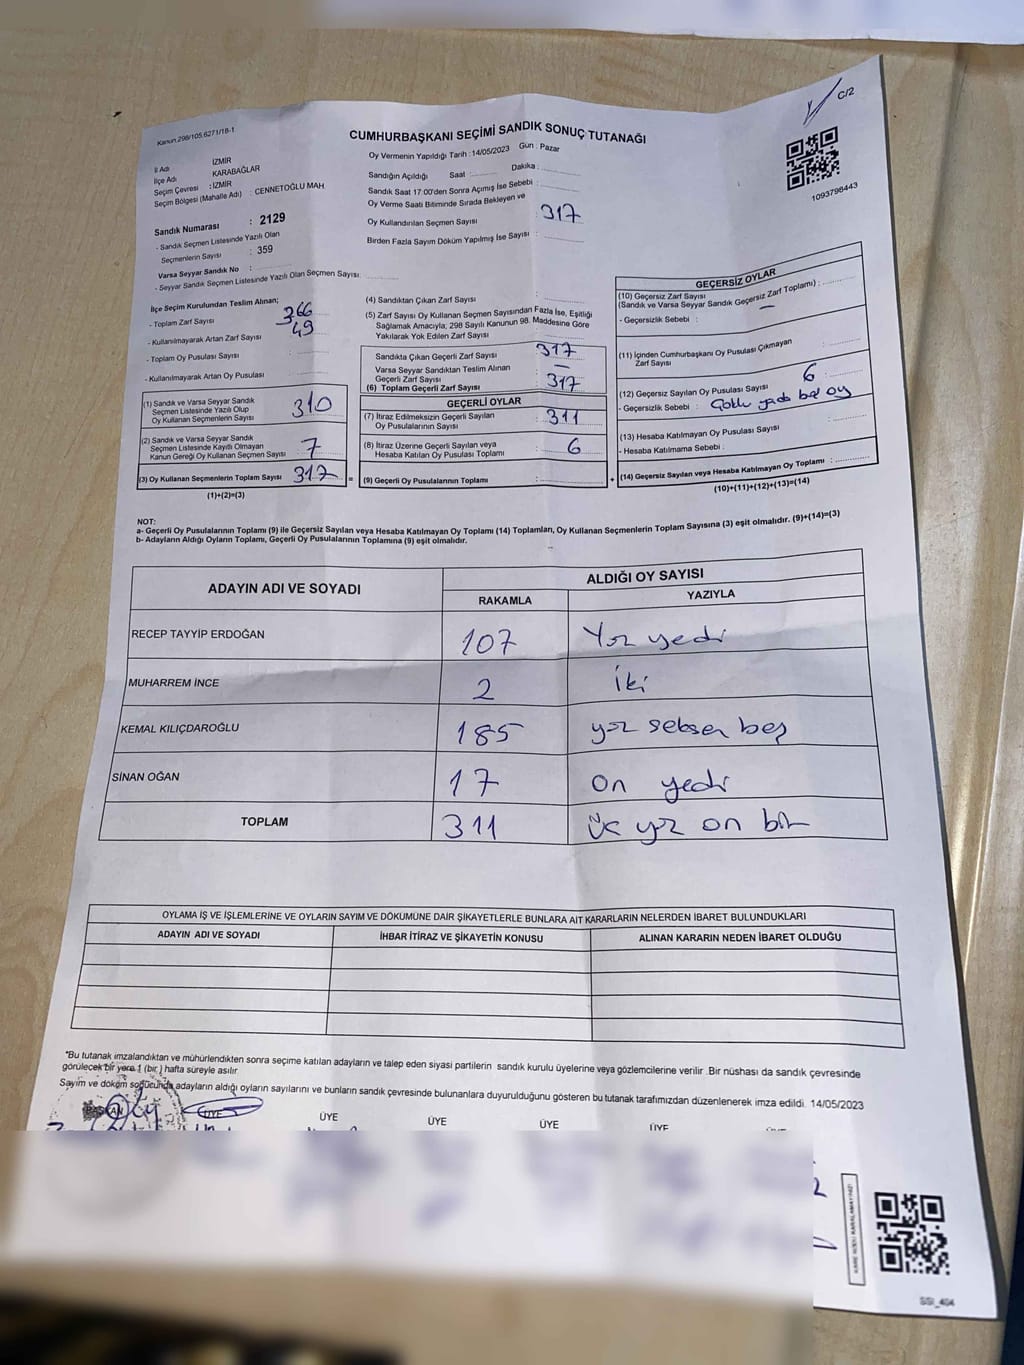 C/2
Kanun.298/105.6271/18-1
CUMHURBAŞKANI SEÇİMİ SANDIK SONUÇ TUTANAĞI
1093798443
İl Adı İZMİR
İlçe Adı KARABAĞLAR
Seçim Çevresi : İZMİR
Seçim Bölgesi (Mahalle Adı) : CENNETOĞLU MAH.
Sandık Numarası : 2129
- Sandık Seçmen Listesinde Yazılı Olan
Seçmenlerin Sayısı : 359
Varsa Seyyar Sandık No :
- Seyyar Sandık Seçmen Listesinde Yazılı Olan Seçmen Sayısı:
Oy Vermenin Yapıldığı Tarih : 14/05/2023 Gün : Pazar
Sandığın Açıldığı Saat : Dakika :
Sandık Saat 17:00'den Sonra Açımış İse Sebebi :
Oy Verme Saati Bitiminde Sırada Bekleyen ve
Oy Kullandırılan Seçmen Sayısı : 317
Birden Fazla Sayım Döküm Yapılmış İse Sayısı :
İlçe Seçim Kurulundan Teslim Alınan;
- Toplam Zarf Sayısı : 366
- Kullanılmayarak Artan Zarf Sayısı : 49
- Toplam Oy Pusulası Sayısı :
- Kullanılmayarak Artan Oy Pusulası :
(1) Sandık ve Varsa Seyyar Sandık
Seçmen Listesinde Yazılı Olup
Oy Kullanan Seçmenlerin Sayısı : 310
(2) Sandık ve Varsa Seyyar Sandık
Seçmen Listesinde Kayıtlı Olmayan
Kanun Gereği Oy Kullanan Seçmen Sayısı : 7
(3) Oy Kullanan Seçmenlerin Toplam Sayısı : 317
(1)+(2)=(3)
(4) Sandıktan Çıkan Zarf Sayısı :
(5) Zarf Sayısı Oy Kullanan Seçmen Sayısından Fazla İse, Eşitliği
Sağlamak Amacıyla; 298 Sayılı Kanunun 98. Maddesine Göre
Yakılarak Yok Edilen Zarf Sayısı :
Sandıkta Çıkan Geçerli Zarf Sayısı : 317
Varsa Seyyar Sandıktan Teslim Alınan
Geçerli Zarf Sayısı : —
(6) Toplam Geçerli Zarf Sayısı : 317
GEÇERLİ OYLAR
(7) İtiraz Edilmeksizin Geçerli Sayılan
Oy Pusulalarının Sayısı : 311
(8) İtiraz Üzerine Geçerli Sayılan veya
Hesaba Katılan Oy Pusulası Toplamı : 6
= (9) Geçerli Oy Pusulalarının Toplamı : +
GEÇERSİZ OYLAR
(10) Geçersiz Zarf Sayısı
(Sandık ve Varsa Seyyar Sandık Geçersiz Zarf Toplamı) : —
- Geçersizlik Sebebi :
(11) İçinden Cumhurbaşkanı Oy Pusulası Çıkmayan
Zarf Sayısı :
(12) Geçersiz Sayılan Oy Pusulası Sayısı : 6
- Geçersizlik Sebebi : Çoklu yada boş oy
(13) Hesaba Katılmayan Oy Pusulası Sayısı :
- Hesaba Katılmama Sebebi :
(14) Geçersiz Sayılan veya Hesaba Katılmayan Oy Toplamı :
(10)+(11)+(12)+(13)=(14)
NOT:
a- Geçerli Oy Pusulalarının Toplamı (9) ile Geçersiz Sayılan veya Hesaba Katılmayan Oy Toplamı (14) Toplamları, Oy Kullanan Seçmenlerin Toplam Sayısına (3) eşit olmalıdır. (9)+(14)=(3)
b- Adayların Aldığı Oyların Toplamı, Geçerli Oy Pusulalarının Toplamına (9) eşit olmalıdır.
ADAYIN ADI VE SOYADI ALDIĞI OY SAYISI
RAKAMLA YAZIYLA
RECEP TAYYİP ERDOĞAN 107 Yüz yedi
MUHARREM İNCE 2 İki
KEMAL KILIÇDAROĞLU 185 yüz seksen beş
SİNAN OĞAN 17 On yedi
TOPLAM 311 Üç yüz on bir
OYLAMA İŞ VE İŞLEMLERİNE VE OYLARIN SAYIM VE DÖKÜMÜNE DAİR ŞİKAYETLERLE BUNLARA AİT KARARLARIN NELERDEN İBARET BULUNDUKLARI
ADAYIN ADI VE SOYADI İHBAR İTİRAZ VE ŞİKAYETİN KONUSU ALINAN KARARIN NEDEN İBARET OLDUĞU
"Bu tutanak imzalandıktan ve mühürlendikten sonra seçime katılan adayların ve talep eden siyasi partilerin sandık kurulu üyelerine veya gözlemcilerine verilir. Bir nüshası da sandık çevresinde
görülecek bir yere 1 (bir) hafta süreyle asılır.
Sayım ve döküm sonucunda adayların aldığı oyların sayılarını ve bunların sandık çevresinde bulunanlara duyurulduğunu gösteren bu tutanak tarafımızdan düzenlenerek imza edildi. 14/05/2023
BAŞKAN ÜYE ÜYE ÜYE ÜYE ÜYE
SSI_404